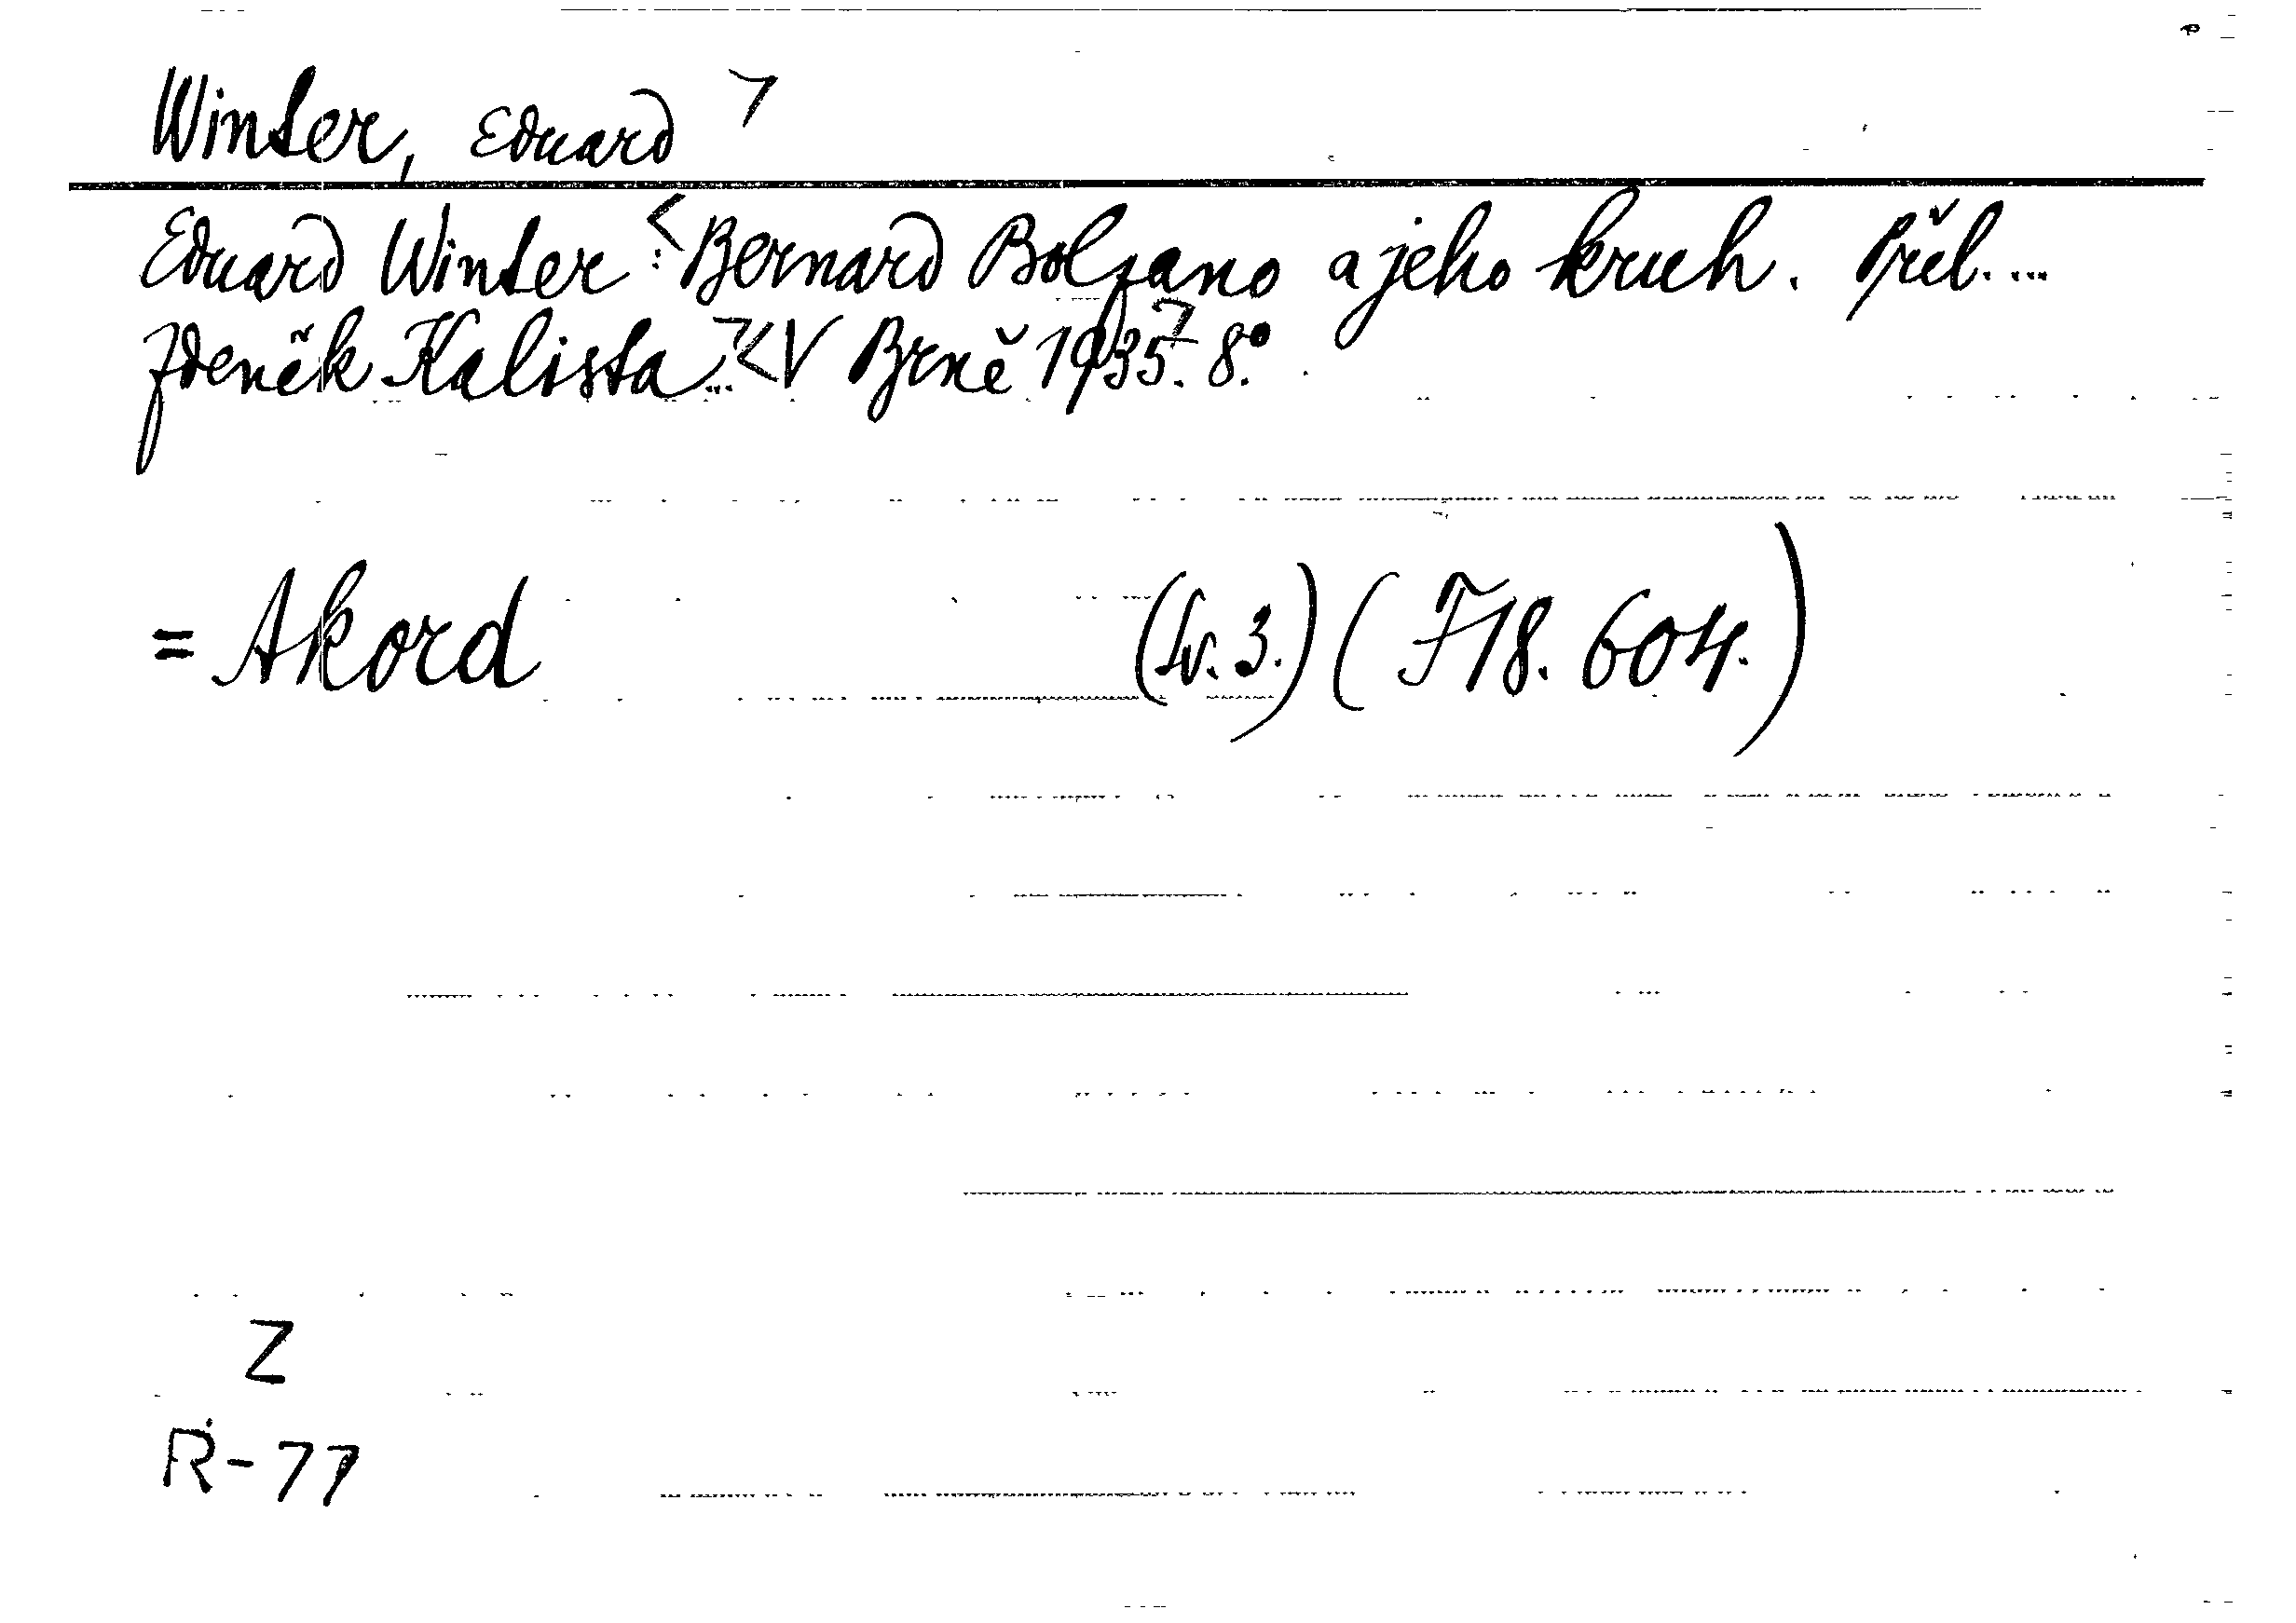 Winter, Eduard >
Eduard Winter :< Bernard Bolzano a jeho kruh. Přel. ...
Zdeněk Kalista ... >< V Brně 1935 >. 8.°
= Akord (Sv. 3.) (F18. 604.)
Z
R-77